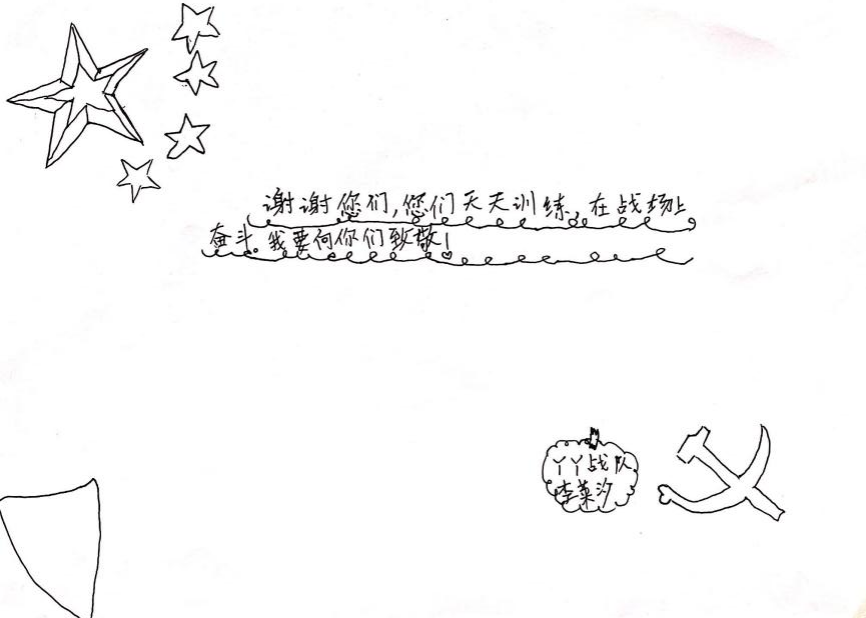 谢谢您们,您们天天训练。在战场上
奋斗。我要向你们致敬!
丫丫战队
李菜汐